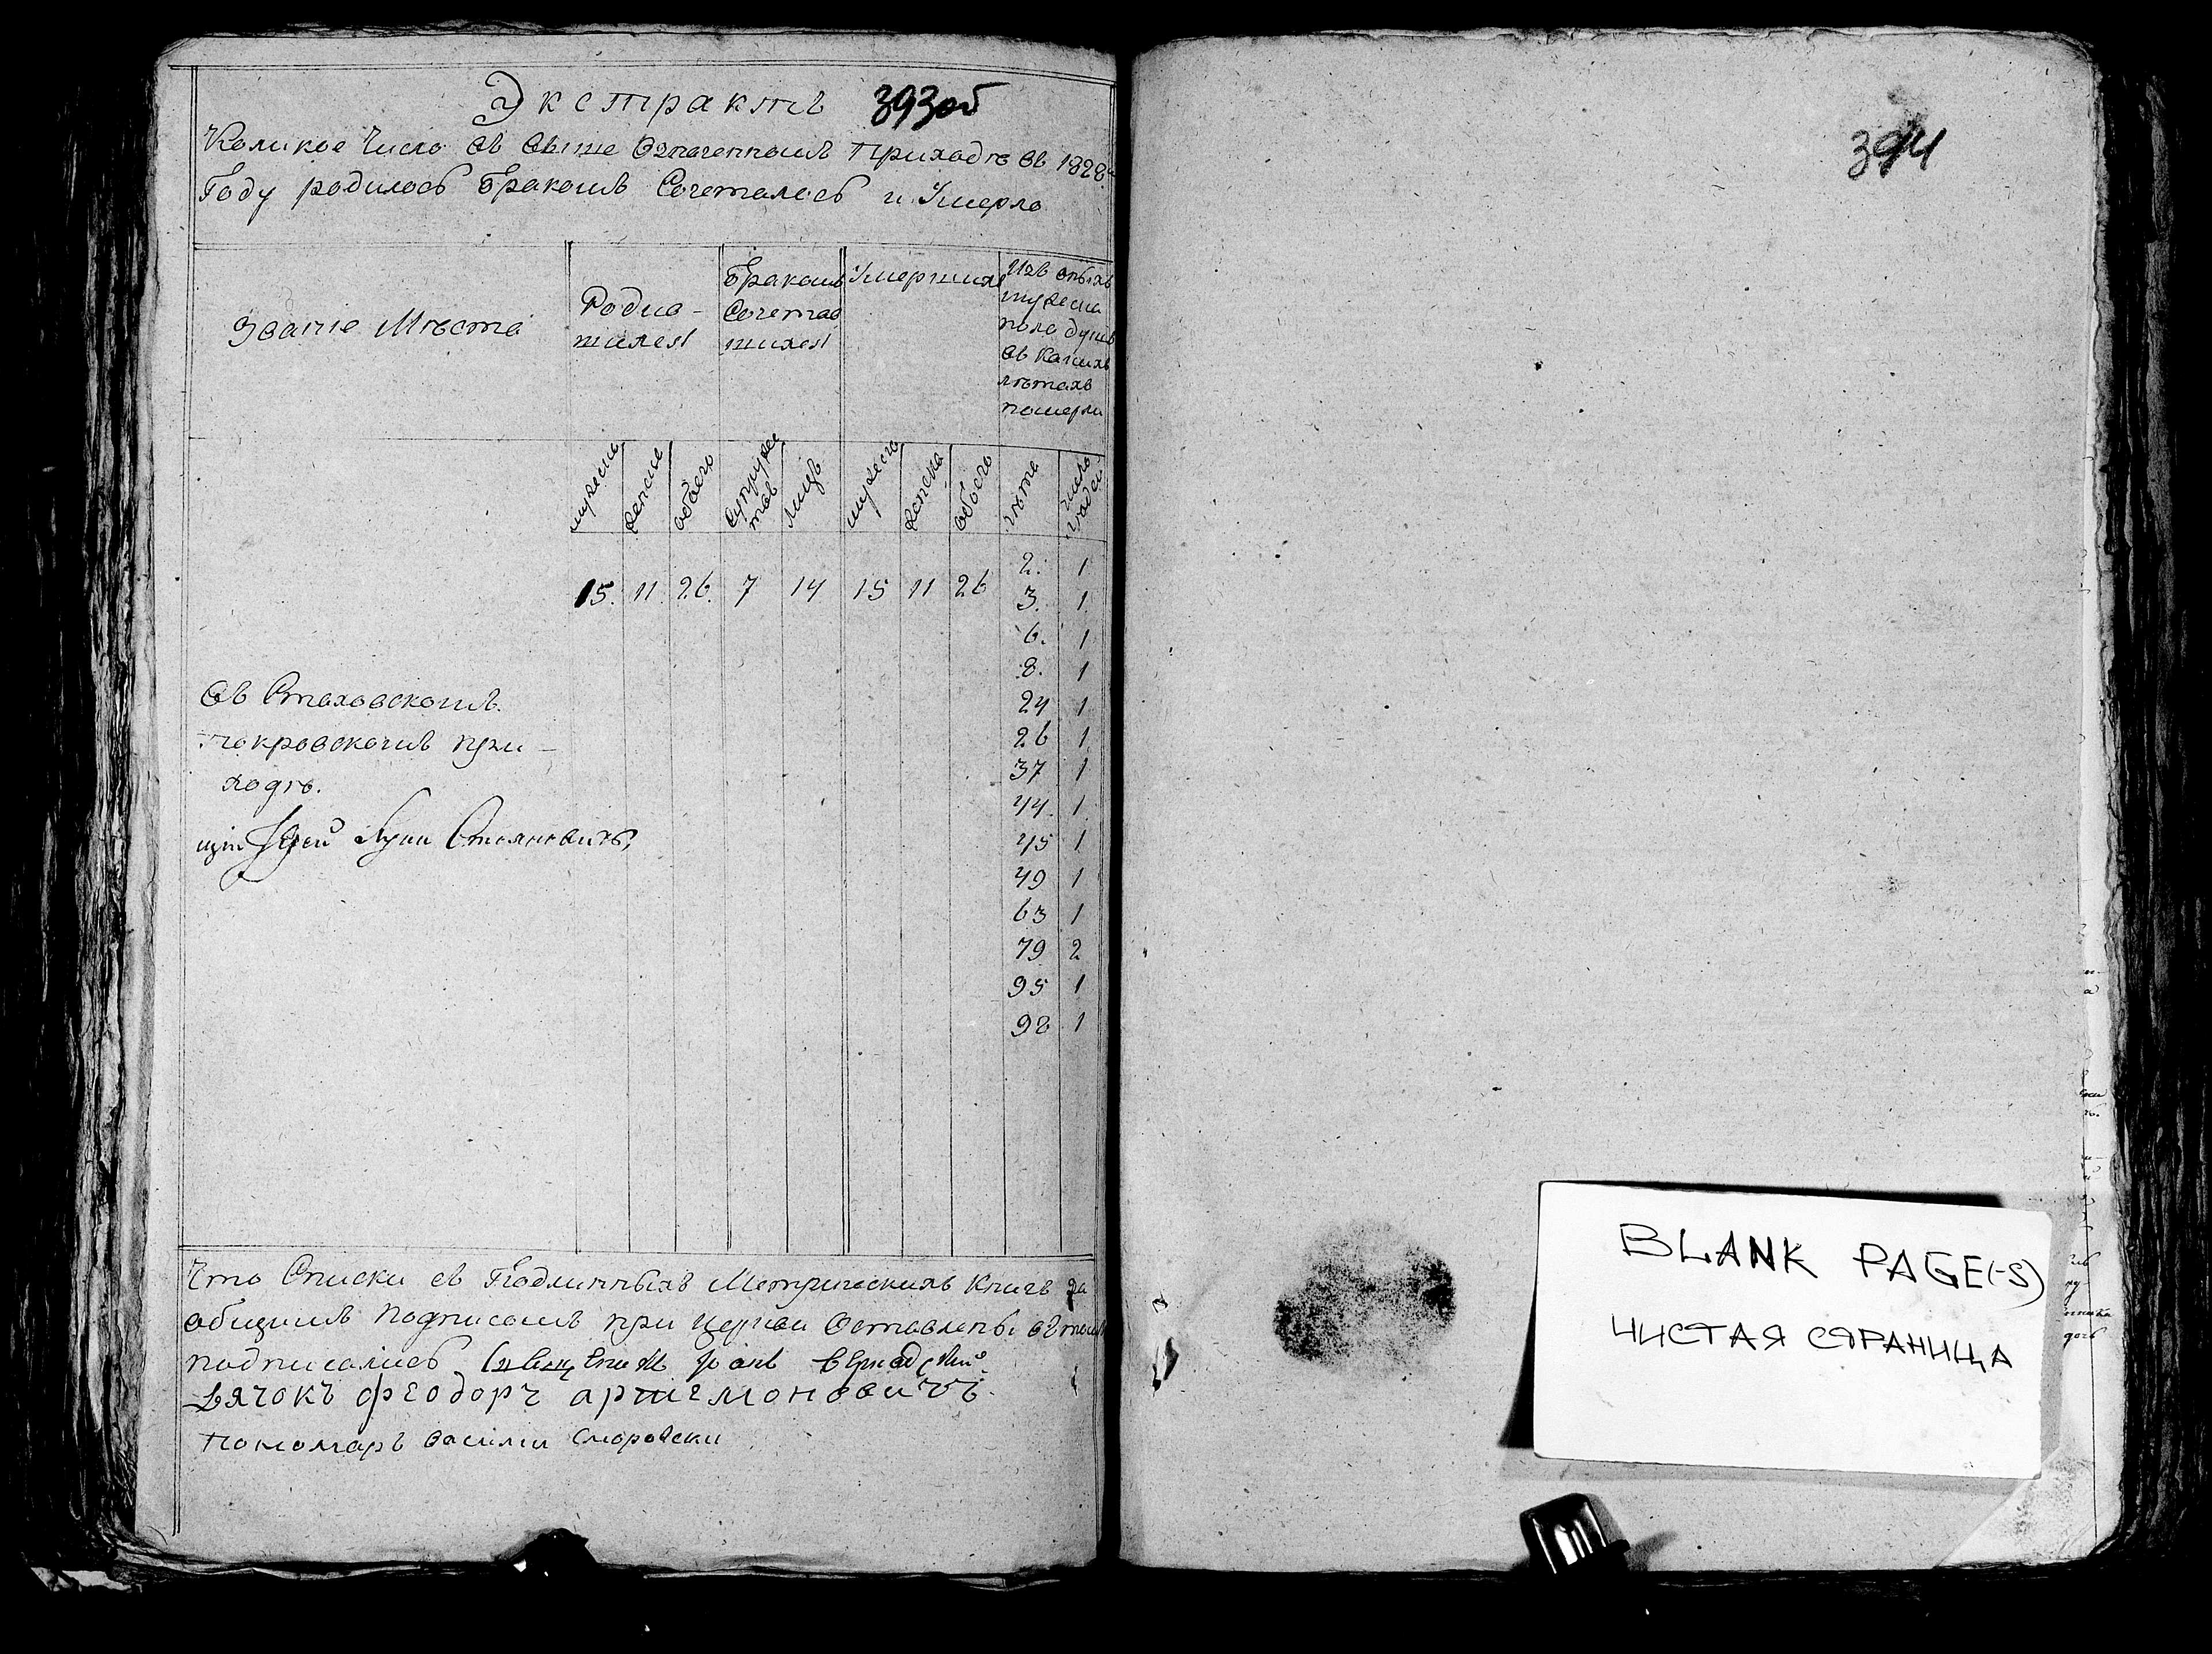 Экстрактъ 393об
Коликое Число Въ Выше Означенномъ Приходѣ Въ 1828м
Году родилось бракомъ Сочеталось и Умерло
Звание Мѣста
Родив-
шихся
бракомъ
Сочетав
шихся
Умершихъ
Изъ оныхъ
мужеска
пола душъ
въ какихъ
лѣтахъ
померли
мужеска
женска
обоего
супружес
твъ
лицъ
мужеска
женска
обоего
лѣта
число
людей
15. 11. 26. 7 14 15 11 26
2. 1
3. 1.
6. 1
8. 1
24 1
26 1
37 1
44. 1.
45 1
49 1
63 1
79 2
95 1
98 1
Въ Стаховскомъ
Покровскомъ при-
ходѣ.
Стояновичъ
Что Списки съ Подлинныхъ Метрическихъ Книгъ за
общимъ подписомъ при церкви Оставлены въ томъ
подписались
Дячокъ Феодоръ артемоновичъ.
Пономаръ Василий
394
BLANK PAGE(-S)
ЧИСТАЯ СТРАНИЦА